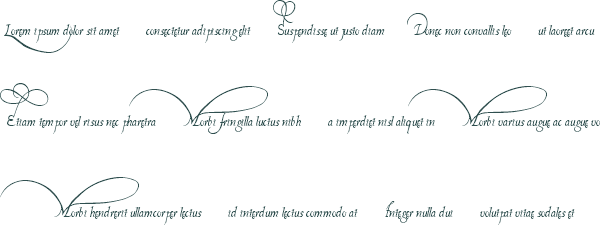 Lorem ipsum dolor sit amet consectetur adipiscing elit Suspendisse ut justo diam Donec non convallis leo ut laoreet arcu
Etiam tempor vel risus nec pharetra Morbi fringilla luctus nibh a imperdiet nisl aliquet in Morbi varius augue ac augue vo
Morbi hendrerit ullamcorper lectus id interdum lectus commodo at Integer nulla dui volutpat vitae sodales et